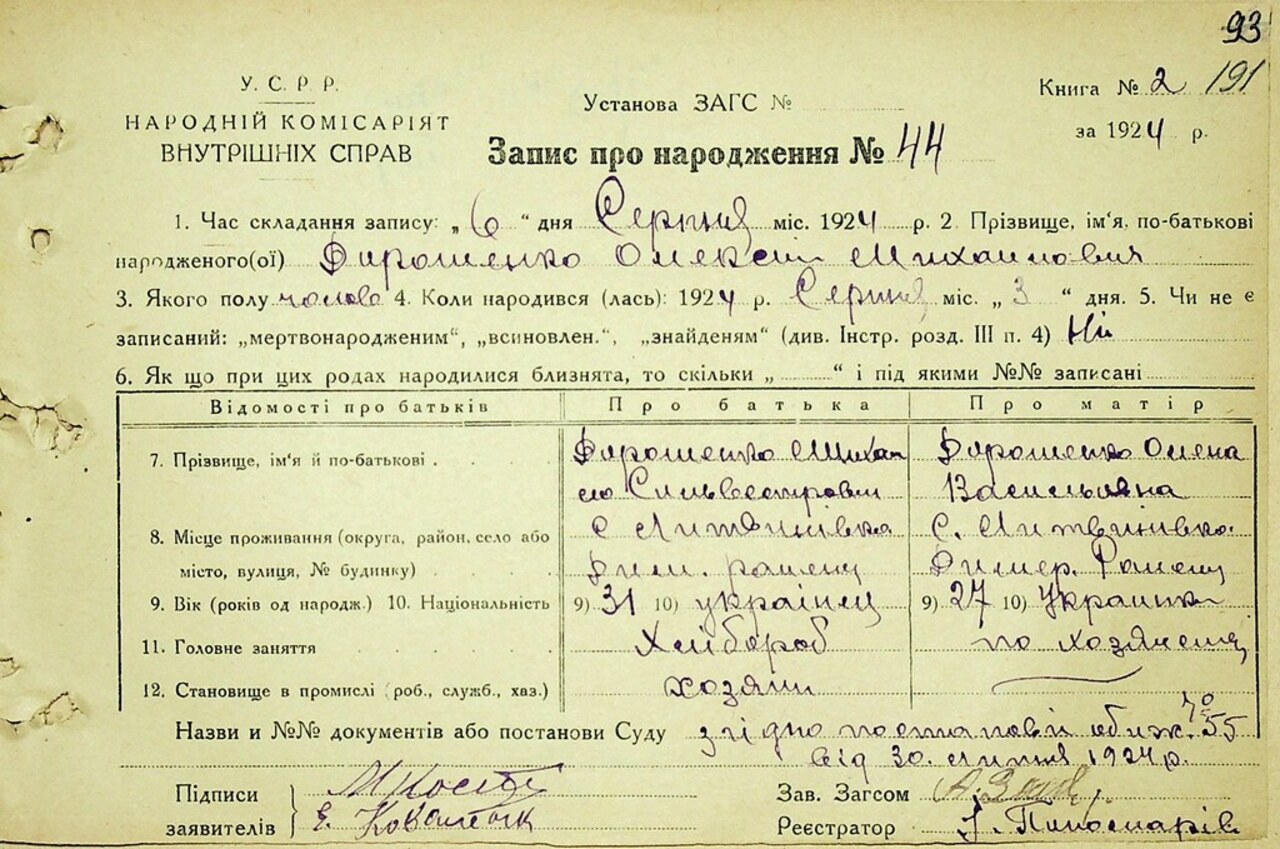 93
У. С. Р. Р.
НАРОДНІЙ КОМІСАРІЯТ
ВНУТРІШНІХ СПРАВ
Установа ЗАГС №
Книга № 2 191
за 1924 р.
Запис про народження № 44
1. Час складання запису: „ 6 “ дня Серпня міс. 1924 р. 2. Прізвище, ім‘я, по-батькові
народженого(ої) Дорошенко Олексій Михайлович
3. Якого полу чолов 4. Коли народився (лась): 1924 р. Серпня міс. „ 3 “ дня. 5. Чи не є
записаний: „мертвонародженим“, „всиновлен.“, „знайденям“ (див. Інстр. розд. III п. 4) Ні
6. Як що при цих родах народилися близнята, то скільки „ “ і під якими №№ записані
Відомості про батьків Про батька Про матір
7. Прізвище, ім‘я й по-батькові Дорошенко Михай Дорошенко Олена
ло Сильвестрович Васильовна
8. Місце проживання (округа, район, село або С Литвинівка С. Литвинівка
місто, вулиця, № будинку) Дим. Димер.
9. Вік (років од народж.) 10. Національність 9) 31 10) українец 9) 27 10) Українка
11. Головне заняття Хлібороб по
12. Становище в промислі (роб., служб., хаз.) хозяин
Назви и №№ документів або постанови Суду згідно 55
від 30. 1924 р.
Підписи М
заявителів Є. Коваленк
Зав. Загсом А.
Реєстратор Пономарів